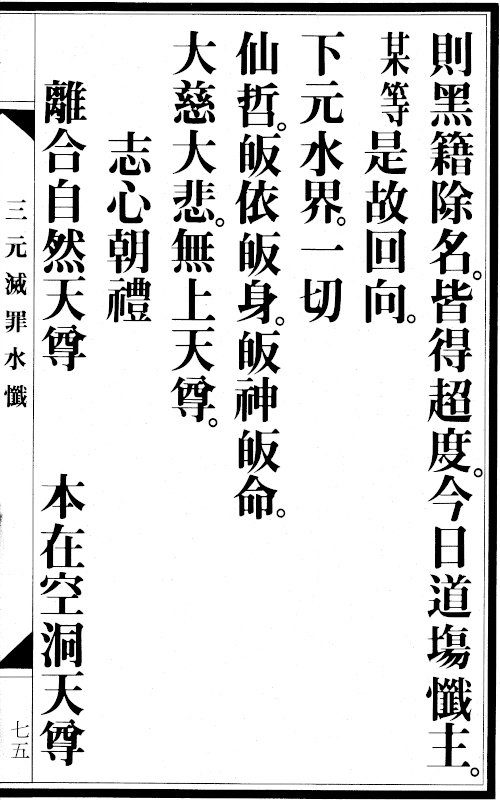 則黑籍除名。皆得超度。今日道塲懺主。
某等是故回向。
下元水界。一切
仙哲。皈依皈身。皈神皈命。
大慈大悲。無上天尊。
志心朝禮
離合自然天尊 本在空洞天尊
三元滅罪水懺
七五